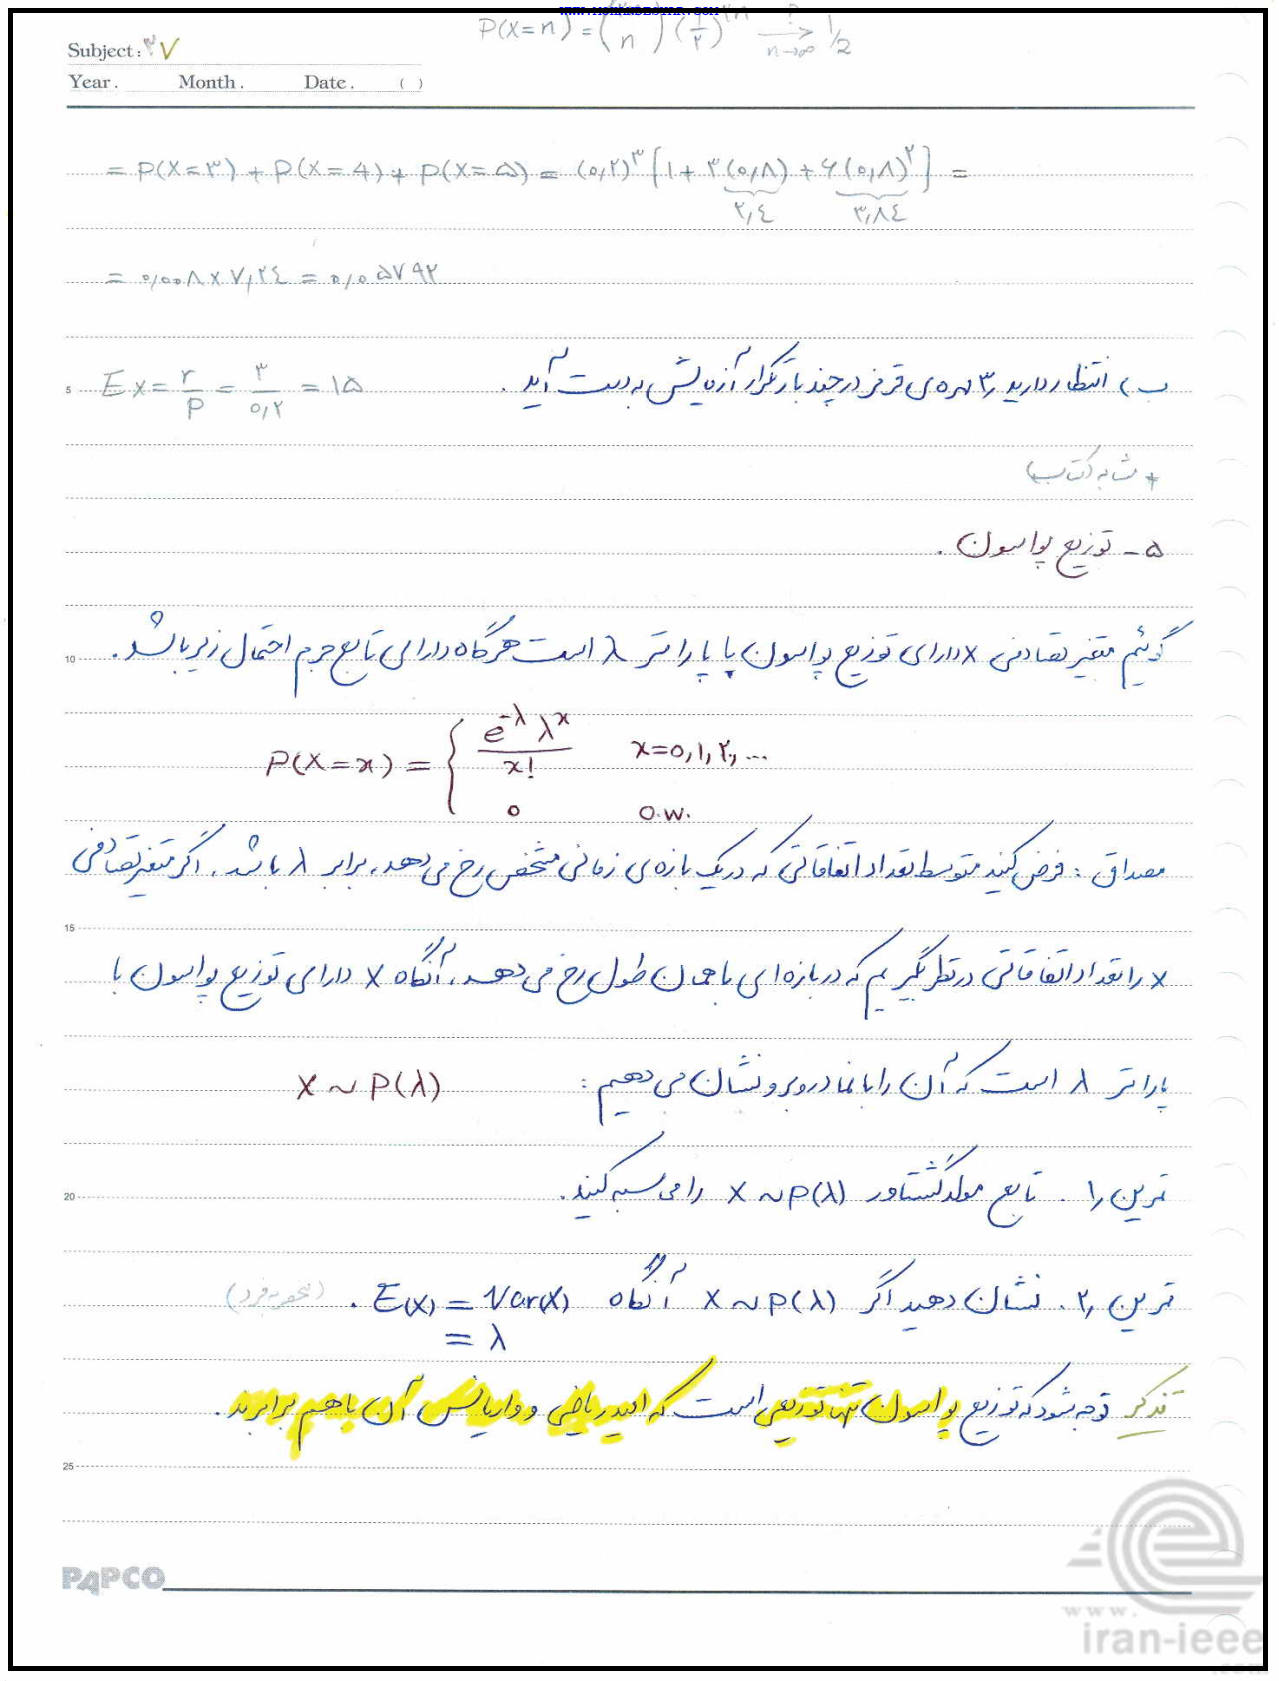 www.mohandesyar.com
P(X=n) = (2n n) (1/۲)^2n →? n→∞ 1/2
Subject: ۳۷
Year. Month. Date. ( )
= P(X=۳) + P(X=4) + P(X=۵) = (۰٫۲)^۳ [1 + ۳(۰٫۸) + ۶(۰٫۸)^۲] =
۲٫٤ ۳٫۸٤
= ۰٫۰۰۸ × ۷٫۲٤ = ۰٫۰۵۷۹۲
5 ب) انتظار دارید ۳ مهره‌ی قرمز در چند بار تکرار آزمایش به دست آید . EX = r/P = ۳/۰٫۲ = ۱۵
۵ - توزیع پواسون .
10 گوئیم متغیر تصادفی X دارای توزیع پواسون با پارامتر λ است هرگاه دارای تابع جرم احتمال زیر باشد .
P(X=x) = { e^-λ λ^x / x! x=0,1,۲, ...
0 O.W.
مصداق : فرض کنید متوسط تعداد اتفاقاتی که در یک بازه‌ی زمانی مشخص رخ می دهد، برابر λ باشد . اگر متغیر تصادفی
15
X را تعداد اتفاقاتی در نظر بگیریم که در بازه ای با همان طول رخ می دهد، آنگاه X دارای توزیع پواسون با
پارامتر λ است که آن را با نماد روبرو نشان می دهیم : X ~ P(λ)
20 تمرین ۱ . تابع مولد گشتاور X ~ P(λ) را محاسبه کنید.
تمرین ۲ . نشان دهید اگر X ~ P(λ) آنگاه E(X) = Var(X) . (منحصربفرد)
= λ
تذکر توجه شود که توزیع پواسون تنها توزیعی است که امید ریاضی و واریانس آن با هم برابرند .
25
PAPCO
www.
iran-ieee
.com